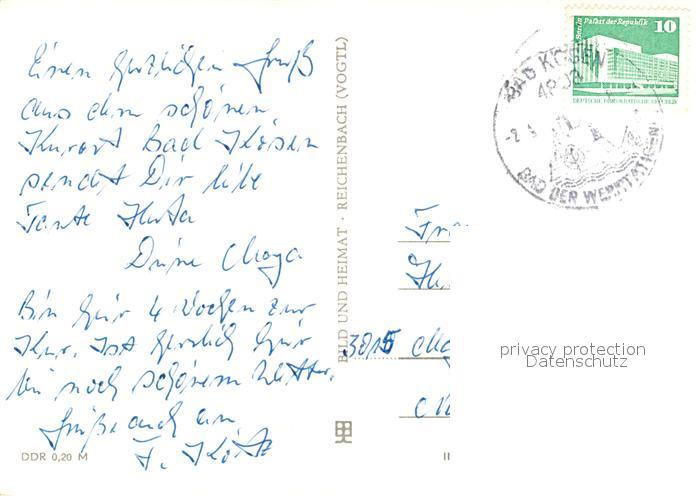 Einen herzlichen Gruß
aus dem schönen
Kurort Bad Kösen
sendet Dir liebe
Tante Herta
Deine Marga
Bin hier 4 Wochen zur
Kur. Ist herrlich hier
bei noch schönem Wetter.
Grüße auch an
F. 
DDR 0,20 M
BILD UND HEIMAT · REICHENBACH (VOGTL)
Berlin Palast der Republik
10
DEUTSCHE DEMOKRATISCHE REPUBLIK
BAD KÖSEN
BAD DER WERKTÄTIGEN
Fr
He
3015 Mag
privacy protection
Datenschutz
II